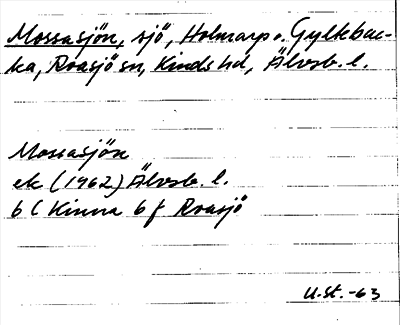 Mossasjön, sjö, Holmarp o. Gyltebac-
ka, Roasjö sn, Kinds hd, Älvsb. l.
Mossasjön
ek (1962) Älvsb. l.
6 C Kinna 6 f Roasjö
U.st. -63